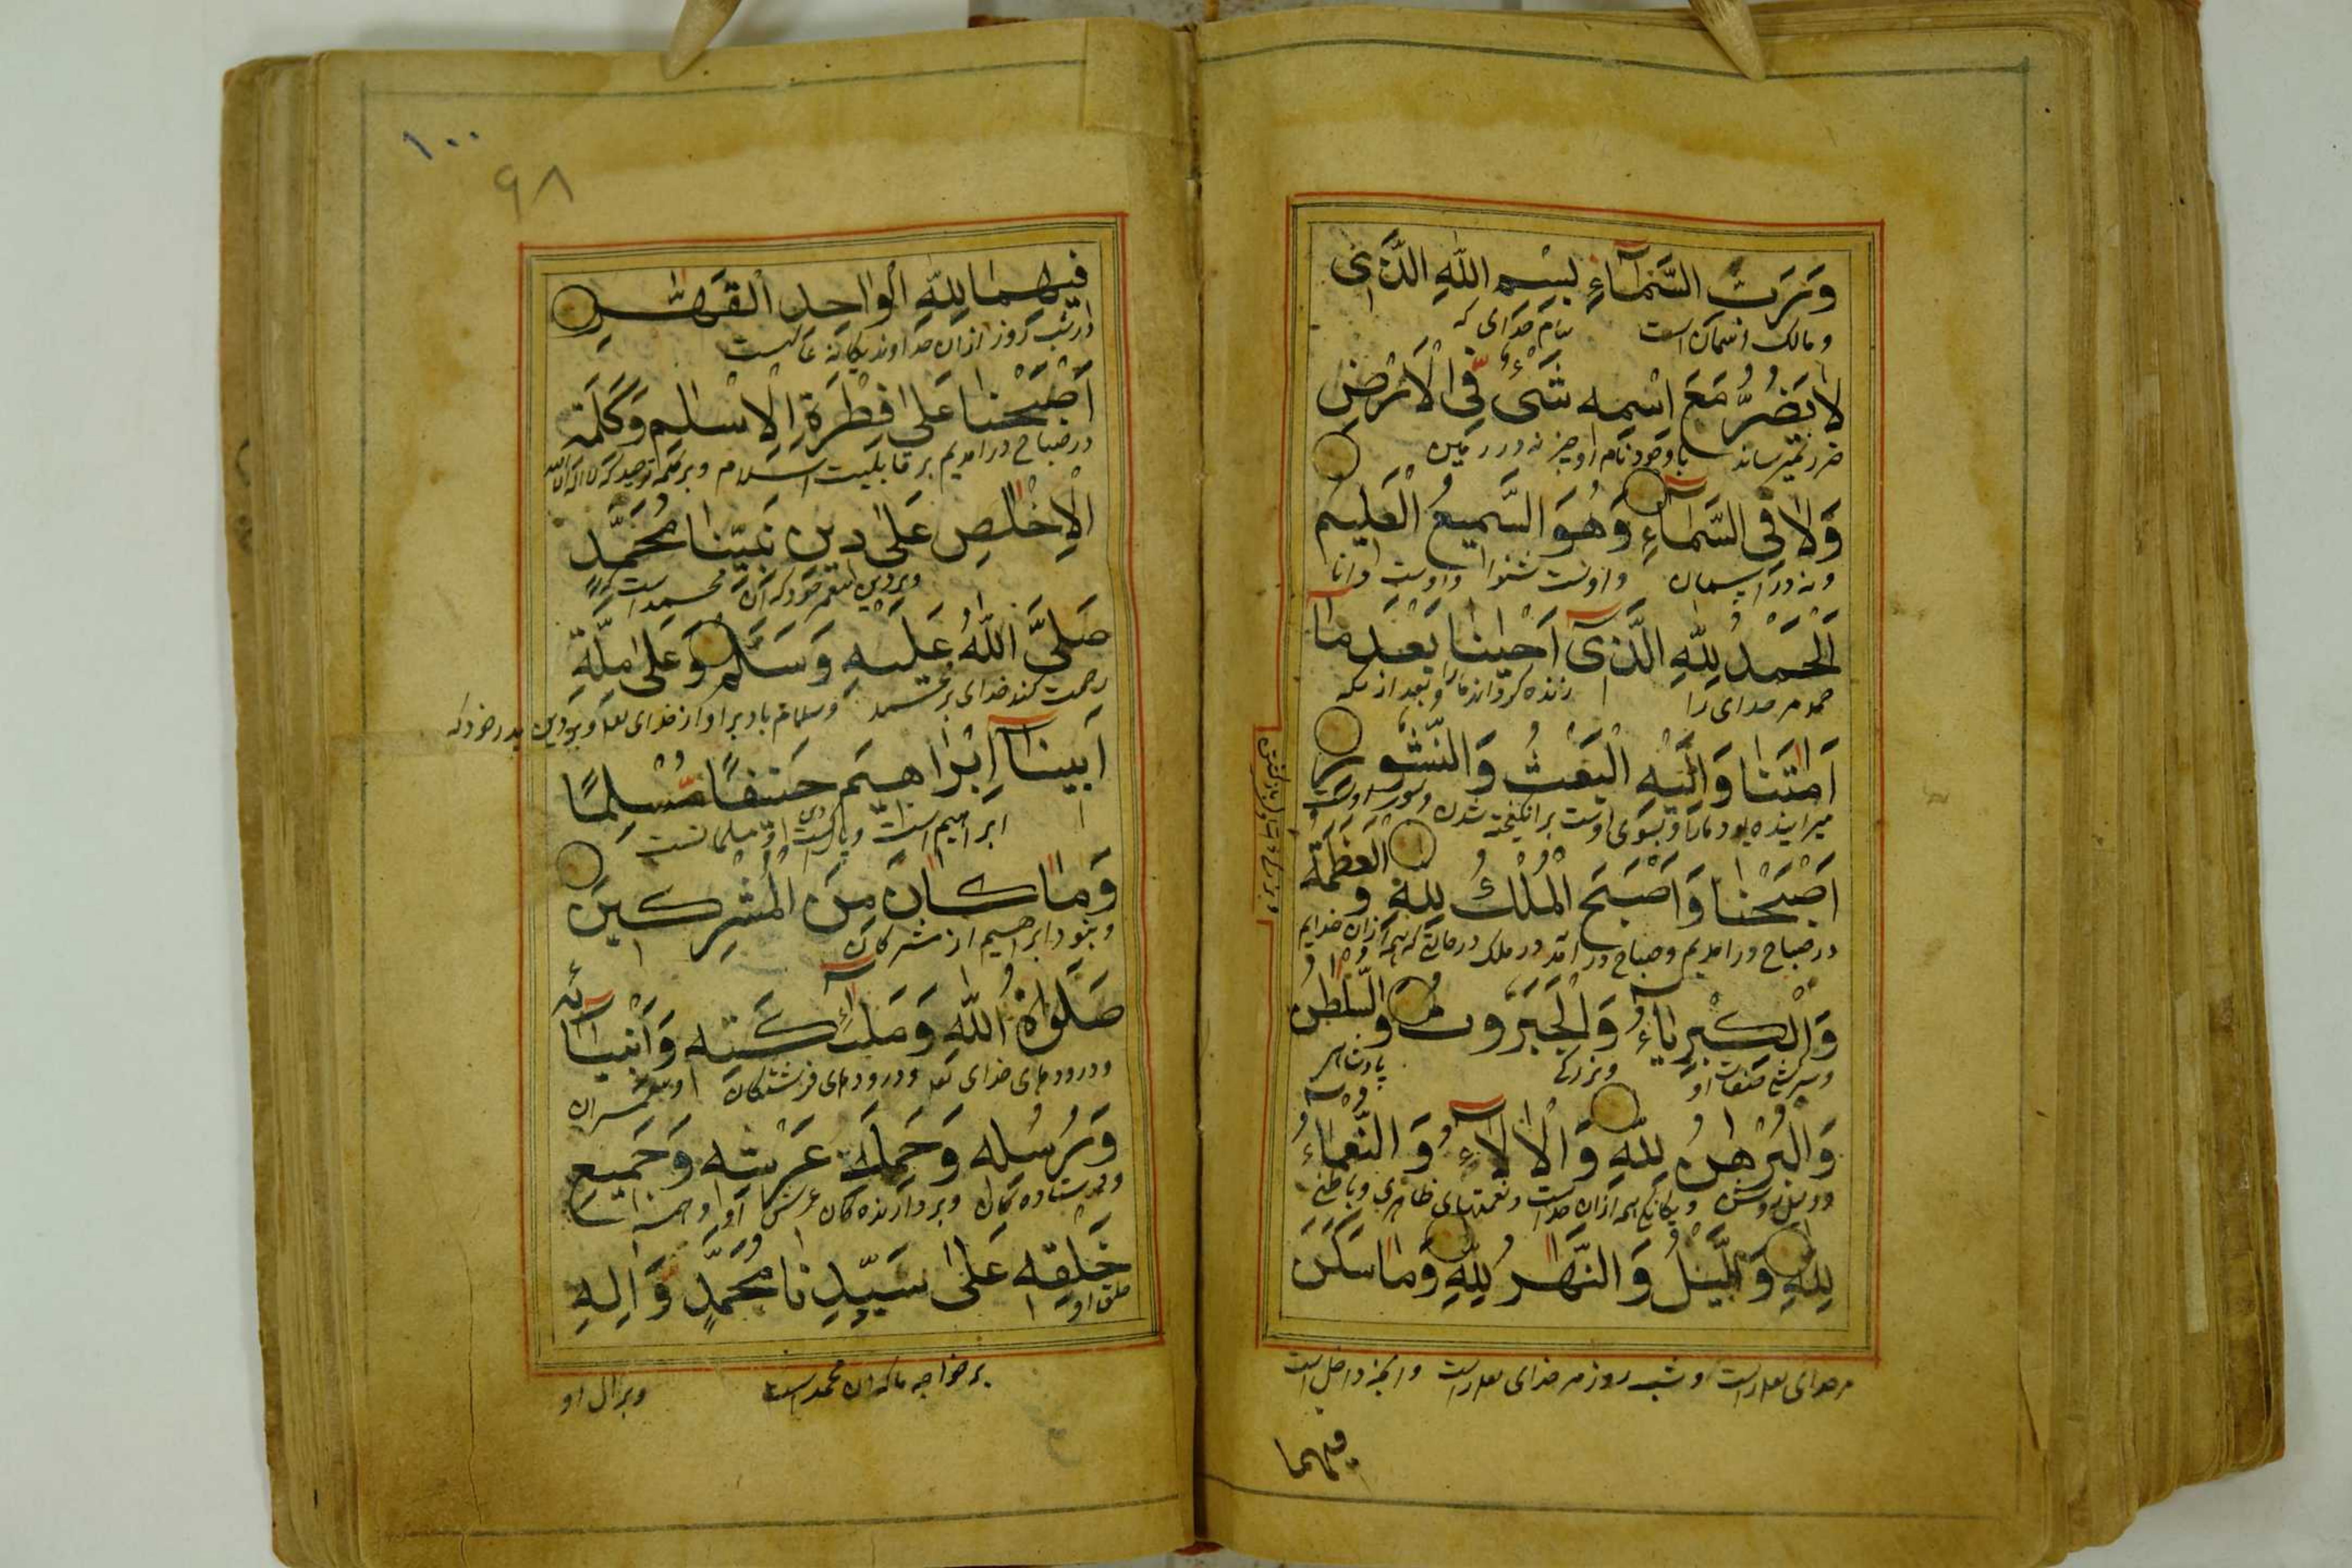 وَرَبِّ السَّمَاءِ بِسْمِ اللّٰهِ الَّذِی
و مالک اسمان است بنام خدای که
لَا یَضُرُّ مَعَ اسْمِهِ شَیْءٌ فِی الْاَرْضِ
ضرر نمیرساند با وجود نام او چیز نه در زمین
وَلَا فِی السَّمَاءِ وَهُوَ السَّمِیعُ الْعَلِیمُ
و نه در اسمان و اوست شنوا و اوست دانا
اَلْحَمْدُ لِلّٰهِ الَّذِی اَحْیٰنَا بَعْدَ مَا
حمد مر خدای را زنده کرداند ما را و بعد از آنکه
اَمَاتَنَا وَاِلَیْهِ الْبَعْثُ وَالنُّشُورُ
میراینده بود ما را و بسوی اوست برانکیخته شدن
اَصْبَحْنَا وَاَصْبَحَ الْمُلْكُ لِلّٰهِ وَ الْعَظَمَةُ
در صباح در امدیم و صباح در آمد در ملک در حالتی که همه ازان خدایم
وَالْكِبْرِیَاءُ وَالْجَبَرُوتُ وَالسُّلْطٰنُ
و بزرکی پادشاهی
وَالْبُرْهٰنُ لِلّٰهِ وَالْاٰلَاءُ وَالنَّعْمَاءُ
و دلیل روشن همه ازان خداست و نعمتهای ظاهری و باطنی
لِلّٰهِ وَاللَّیْلُ وَالنَّهَارُ لِلّٰهِ وَمَا سَكَنَ
مر خدای و شب روز مر خدای و انچه داخل است
فیهما
۱۰۰
۹۸
فِیهِمَا لِلّٰهِ الْوَاحِدِ الْقَهَّارِ
در شب و روز ازان خداوند یکانه غالبست
اَصْبَحْنَا عَلٰی فِطْرَةِ الْاِسْلٰمِ وَكَلِمَةِ
در صباح در امدیم بر قابلیت اسلام و بر کلمه توحید که لا اله الا الله
الْاِخْلٰصِ عَلٰی دِینِ نَبِیِّنَا مُحَمَّدٍ
و بر دین خود که آن محمد است
صَلَّی اللّٰهُ عَلَیْهِ وَسَلَّمَ وَعَلٰی مِلَّةِ
رحمت کند خدای بر محمد و سلام باد بر او از خدای و بر دین پدر خود که
اَبِینَا اِبْرَاهِیمَ حَنِیفًا مُسْلِمًا
ابراهیم است و پاکست او مسلمانست
وَمَا كَانَ مِنَ الْمُشْرِكِینَ
و نبود ابراهیم از مشرکان
صَلَوَاةُ اللّٰهِ وَمَلٰٓئِكَتِهِ وَاَنْبِیَائِهِ
و درودهای خدای و درودهای فرشتکان او و پیغمبران
وَرُسُلِهِ وَحَمَلَةِ عَرْشِهِ وَجَمِیعِ
و فرستاده کان و بردارنده کان عرش او و همه
خَلْقِهِ عَلٰی سَیِّدِنَا مُحَمَّدٍ وَاٰلِهِ
خلق او
بر خواجه ما که ان محمد است و بر ال او